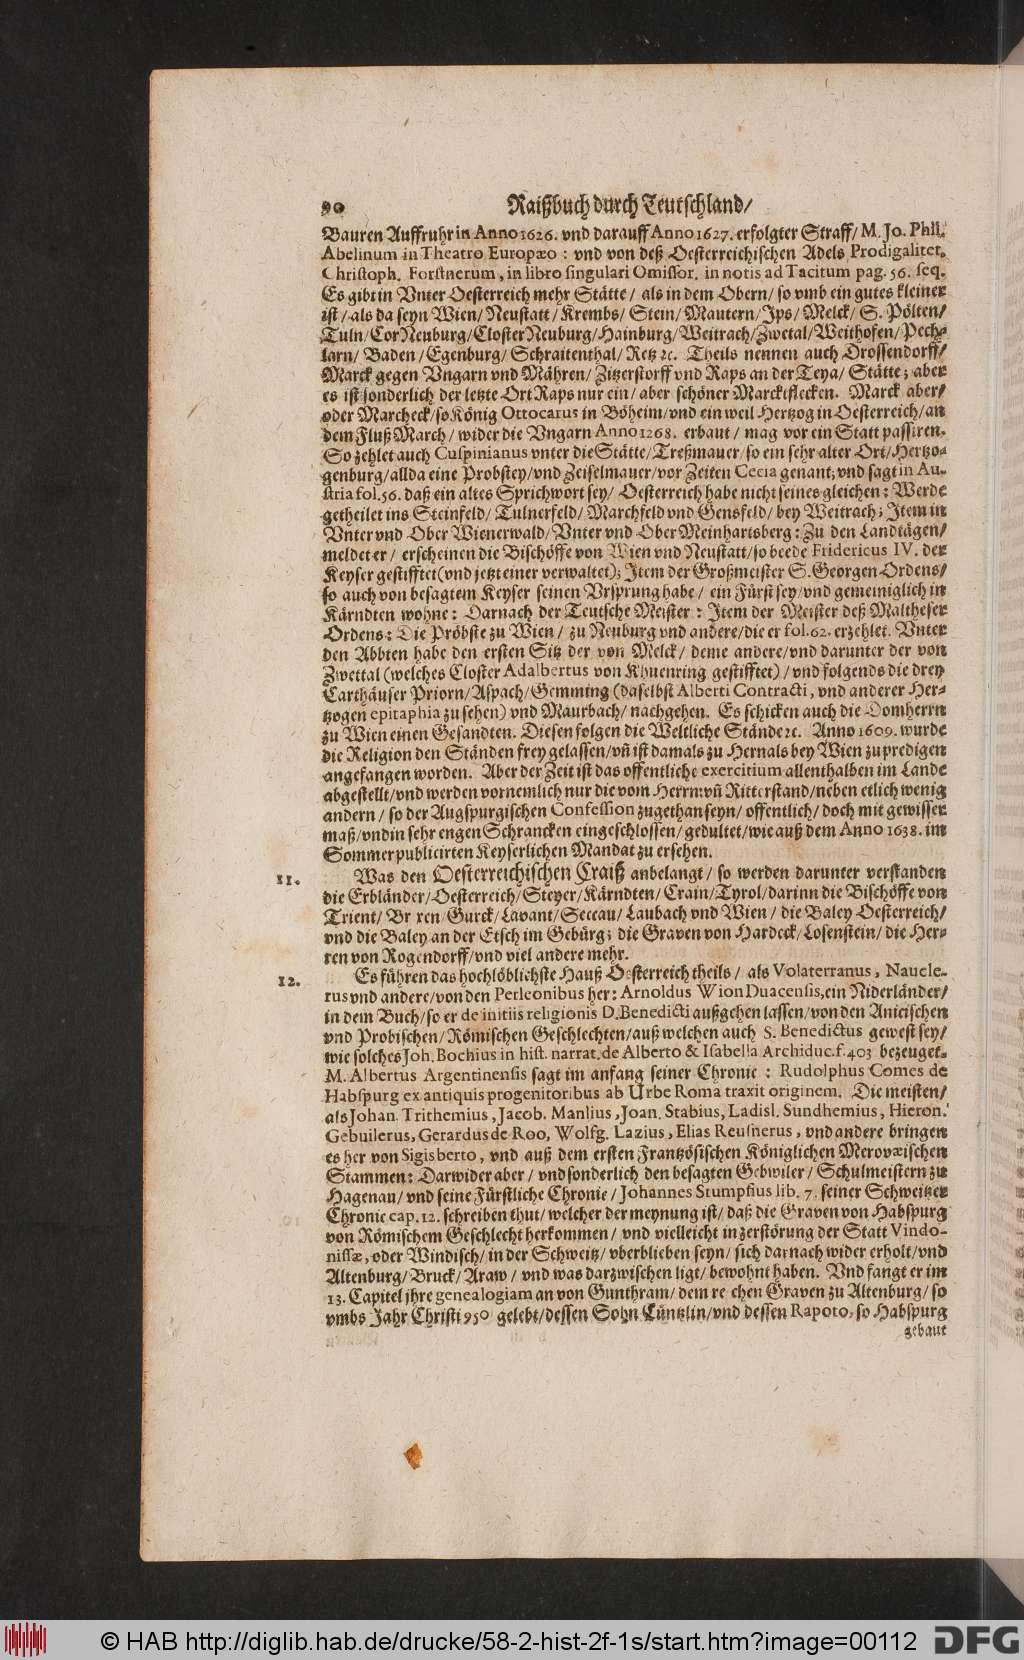 90 Raißbuch durch Teutschland/
Bauren Auffruhr in Anno 1626. vnd darauff Anno 1627. erfolgter Straff/ M. Jo. Phil.
Abelinum in Theatro Europæo: vnd von deß Oesterreichischen Adels Prodigalitet.
Christoph. Forstnerum, in libro singulari Omissor. in notis ad Tacitum pag. 56. seq.
Es gibt in Vnter Oesterreich mehr Stätte/ als in dem Obern/ so vmb ein gutes kleiner
ist/ als da seyn Wien/ Neustatt/ Krembs/ Stein/ Mautern/ Jps/ Melck/ S. Pölten/
Tuln/ CorNeuburg/ ClosterNeuburg/ Hainburg/ Weitrach/ Zwetal/ Weithofen/ Pech-
larn/ Baden/ Egenburg/ Schraitenthal/ Retz ꝛc. Theils nennen auch Drossendorff/
Marck gegen Vngarn vnd Mähren/ Zitzerstorff vnd Raps an der Teya/ Stätte; aber
es ist sonderlich der letzte Ort Raps nur ein/ aber schöner Marcktflecken. Marck aber/
oder Marcheck/ so König Ottocarus in Böheim/ vnd ein weil Hertzog in Oesterreich/ an
dem Fluß March/ wider die Vngarn Anno 1268. erbaut/ mag vor ein Statt passiren.
So zehlet auch Cuspinianus vnter die Stätte/ Treßmauer/ so ein sehr alter Ort/ Hertzo-
genburg/ allda eine Probstey/ vnd Zeiselmauer/ vor Zeiten Cecia genant; vnd sagt in Au-
stria fol. 56. daß ein altes Sprichwort sey/ Oesterreich habe nicht seines gleichen: Werde
getheilet ins Steinfeld/ Tulnerfeld/ Marchfeld vnd Gensfeld/ bey Weitrach; Item in
Vnter vnd Ober Wienerwald/ Vnter vnd Ober Meinhartsberg: Zu den Landtägen/
meldet er/ erscheinen die Bischöffe von Wien vnd Neustatt/ so beede Fridericus IV. der
Keyser gestifftet (vnd jetzt einer verwaltet); Item der Großmeister S. Georgen Ordens/
so auch von besagtem Keyser seinen Vrsprung habe/ ein Fürst sey/ vnd gemeiniglich in
Kärndten wohne: Darnach der Teutsche Meister: Item der Meister deß Maltheser
Ordens: Die Pröbste zu Wien/ zu Neuburg vnd andere/ die er fol. 62. erzehlet. Vnter
den Abbten habe den ersten Sitz der von Melck/ deme andere/ vnd darunter der von
Zwettal (welches Closter Adalbertus von Khuenring gestifftet)/ vnd folgends die drey
Carthäuser Priorn/ Aspach/ Gemming (daselbst Alberti Contracti, vnd anderer Her-
tzogen epitaphia zu sehen) vnd Maurbach/ nachgehen. Es schicken auch die Domherrn
zu Wien einen Gesandten. Diesen folgen die Weltliche Stände ꝛc. Anno 1609. wurde
die Religion den Ständen frey gelassen/ vn̄ ist damals zu Hernals bey Wien zu predigen
angefangen worden. Aber der Zeit ist das offentliche exercitium allenthalben im Lande
abgestellt/ vnd werden vornemlich nur die vom Herrn: vn̄ Ritterstand/ neben etlich wenig
andern/ so der Augspurgischen Confession zugethan seyn/ offentlich/ doch mit gewisser
maß/ vnd in sehr engen Schrancken eingeschlossen/ gedultet/ wie auß dem Anno 1638. im
Sommer publicirten Keyserlichen Mandat zu ersehen.
11. Was den Oesterreichischen Craiß anbelangt/ so werden darunter verstanden
die Erbländer/ Oesterreich/ Steyer/ Kärndten/ Crain/ Tyrol/ darinn die Bischöffe von
Trient/ Br xen/ Gurck/ Lavant/ Seccau/ Laubach vnd Wien/ die Baley Oesterreich/
vnd die Baley an der Etsch im Gebürg; die Graven von Hardeck/ Losenstein/ die Her-
ren von Rogendorff/ vnd viel andere mehr.
12. Es führen das hochlöblichste Hauß Oesterreich theils/ als Volaterranus, Naucle-
rus vnd andere/ von den Perleonibus her: Arnoldus Wion Duacensis, ein Niderländer/
in dem Buch/ so er de initiis religionis D. Benedicti außgehen lassen/ von den Anicischen
vnd Probischen/ Römischen Geschlechten/ auß welchen auch S. Benedictus gewest sey/
wie solches Joh. Bochius in hist. narrat. de Alberto & Isabella Archiduc. f. 403 bezeuget.
M. Albertus Argentinensis sagt im anfang seiner Chronic: Rudolphus Comes de
Habspurg ex antiquis progenitoribus ab Urbe Roma traxit originem. Die meisten/
als Johan. Trithemius, Jacob. Manlius, Joan. Stabius, Ladisl. Sundhemius, Hieron.
Gebuilerus, Gerardus de Roo, Wolfg. Lazius, Elias Reusnerus, vnd andere bringen
es her von Sigisberto, vnd auß dem ersten Frantzösischen Königlichen Merovæischen
Stammen: Darwider aber/ vnd sonderlich den besagten Gebwiler/ Schulmeistern zu
Hagenau/ vnd seine Fürstliche Chronic/ Johannes Stumpfius lib. 7. seiner Schweitzer
Chronic cap. 12. schreiben thut/ welcher der meynung ist/ daß die Graven von Habspurg
von Römischem Geschlecht herkommen/ vnd vielleicht in zerstörung der Statt Vindo-
nissæ, oder Windisch/ in der Schweitz/ vberblieben seyn/ sich darnach wider erholt/ vnd
Altenburg/ Bruck/ Araw/ vnd was darzwischen ligt/ bewohnt haben. Vnd fangt er im
13. Capitel jhre genealogiam an von Gunthram/ dem re chen Graven zu Altenburg/ so
vmbs Jahr Christi 950 gelebt/ dessen Sohn Cüntzlin/ vnd dessen Rapoto, so Habspurg
gebaut
© HAB http://diglib.hab.de/drucke/58-2-hist-2f-1s/start.htm?image=00112
DFG